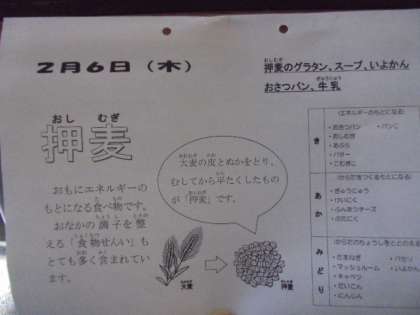 2月6日（木）
押麦のグラタン、スープ、いよかん
おさつパン、牛乳
押麦
おし むぎ
おもにエネルギーの
もとになる食べ物です。
おなかの調子を整
える「食物せんい」も
とても多く含まれてい
ます。
大麦の皮とぬかをとり、
むしてから平たくしたもの
が「押麦」です。
大麦
押麦
き
（エネルギーのもとになる）
・おさつパン ・パンこ
・おしむぎ
・あぶら
・バター
・こむぎこ
あか
（からだをつくるもとになる）
・ぎゅうにゅう
・けいにく
・ぶたにく
みどり
（からだのちょうしをととのえる）
・たまねぎ ・パセリ
・マッシュルーム ・いよかん
・キャベツ
・だいこん
・にんじん